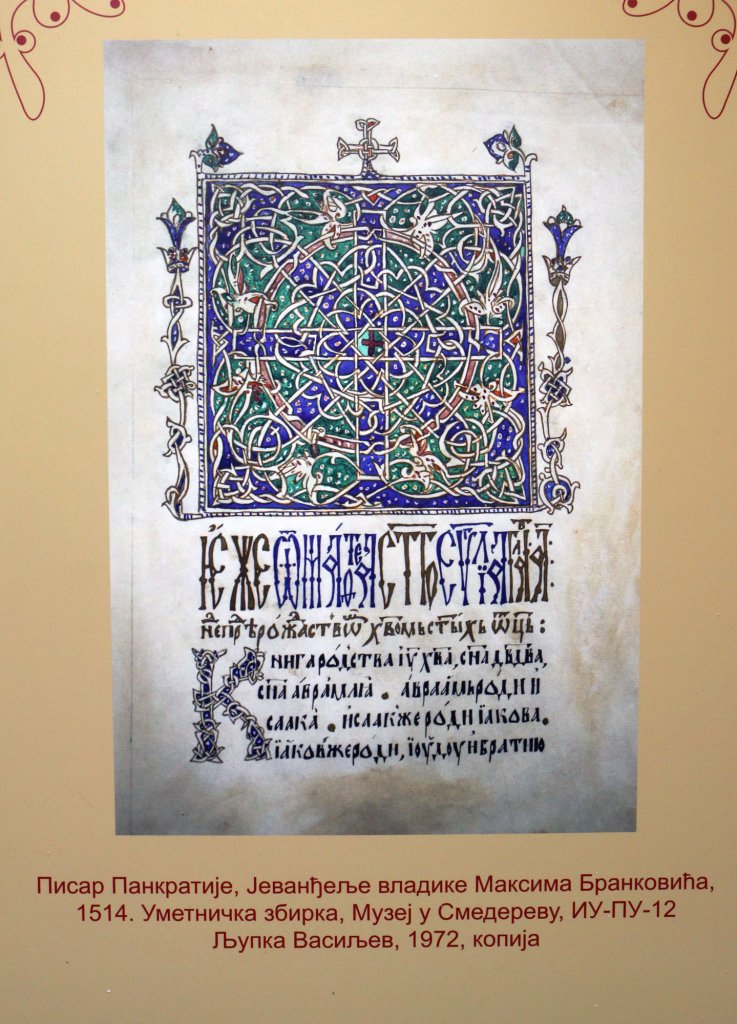 не пре рожⷣаства х҃вомь ст҃ыхь ѿц҃ь :
Книга родства і҃у х҃ва, сн҃а дв҃два,
сн҃а авраамлꙗ . авраамь роди и
саака . исаак же роди іакова .
іаков же роди, іоудоу и братию
Писар Панкратије, Јеванђеље владике Максима Бранковића,
1514. Уметничка збирка, Музеј у Смедереву, ИУ-ПУ-12
Љупка Васиљев, 1972, копија